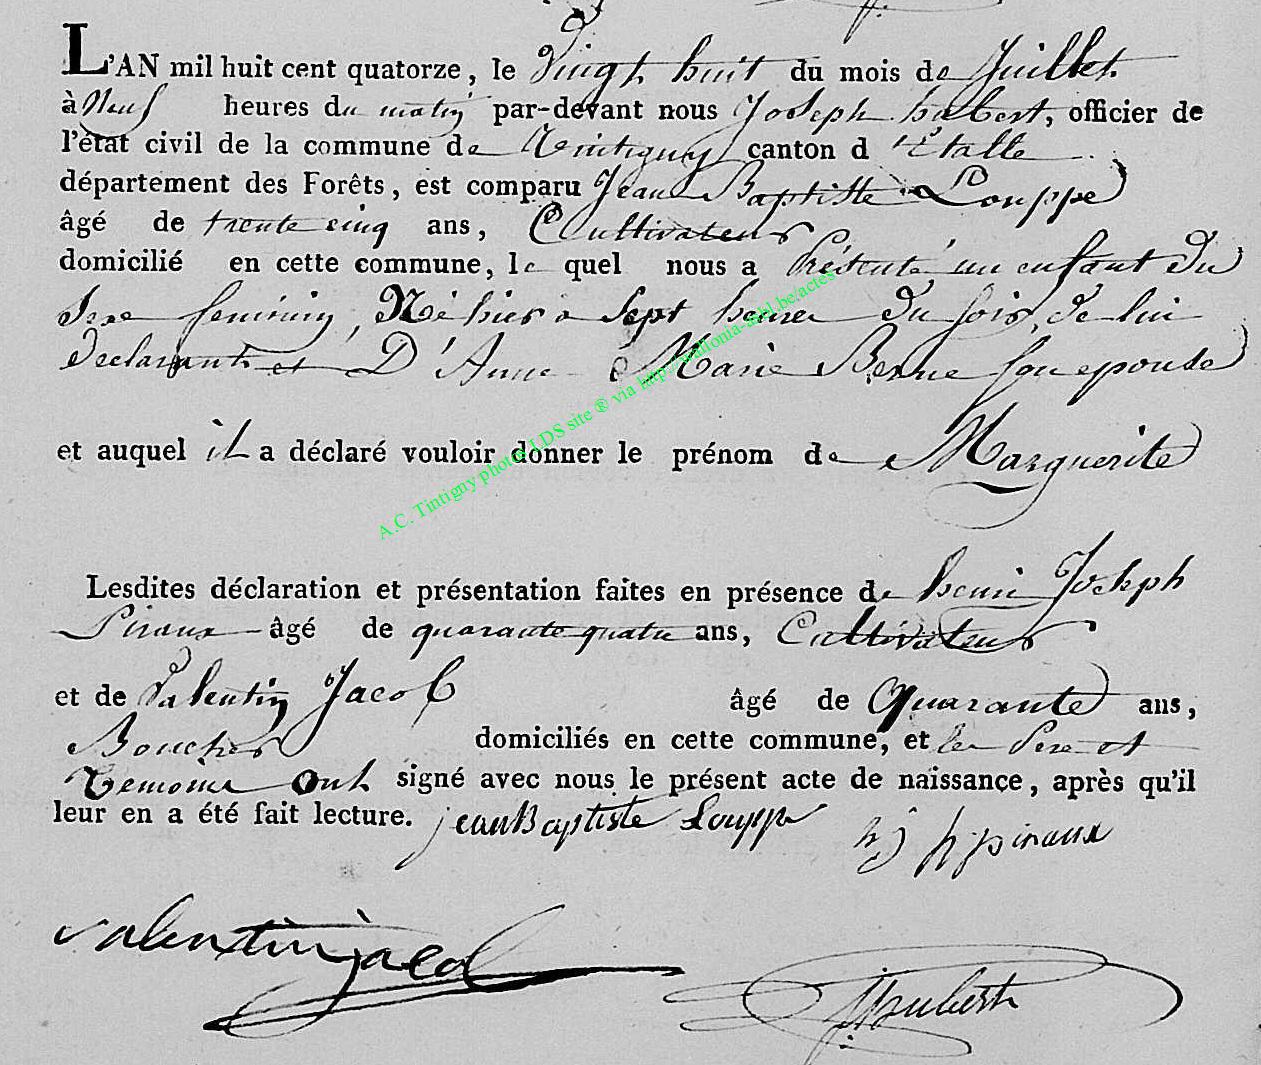 L'AN mil huit cent quatorze, le vingt huit du mois de Juillet
à Neuf heures du matin par-devant nous Joseph hubert, officier de
l'état civil de la commune de Tintigny canton d'Etalle
département des Forêts, est comparu Jean Baptiste Louppe
âgé de trente cinq ans, Cultivateur
domicilié en cette commune, le quel nous a Présenté un enfant du
Sexe feminin, Né hier a Sept heures du soir, de lui
Declarant et D'Anne Marie son epouse
et auquel il a déclaré vouloir donner le prénom de Marguerite
Lesdites déclaration et présentation faites en présence de henri Joseph
Piraux âgé de quarante quatre ans, Cultivateur
et de Valentin Jacob âgé de Quarante ans,
Boucher domiciliés en cette commune, et les Pere et
Temoins Ont signé avec nous le présent acte de naissance, après qu'il
leur en a été fait lecture. jean Baptiste Louppe h j piraux
valentin jacob
Hubert
A.C. Tintigny photos LDS site ® via http://wallonia-asbl.be/actes